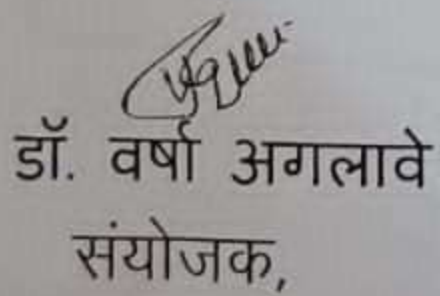 डॉ. वर्षा अगलावे
संयोजक,